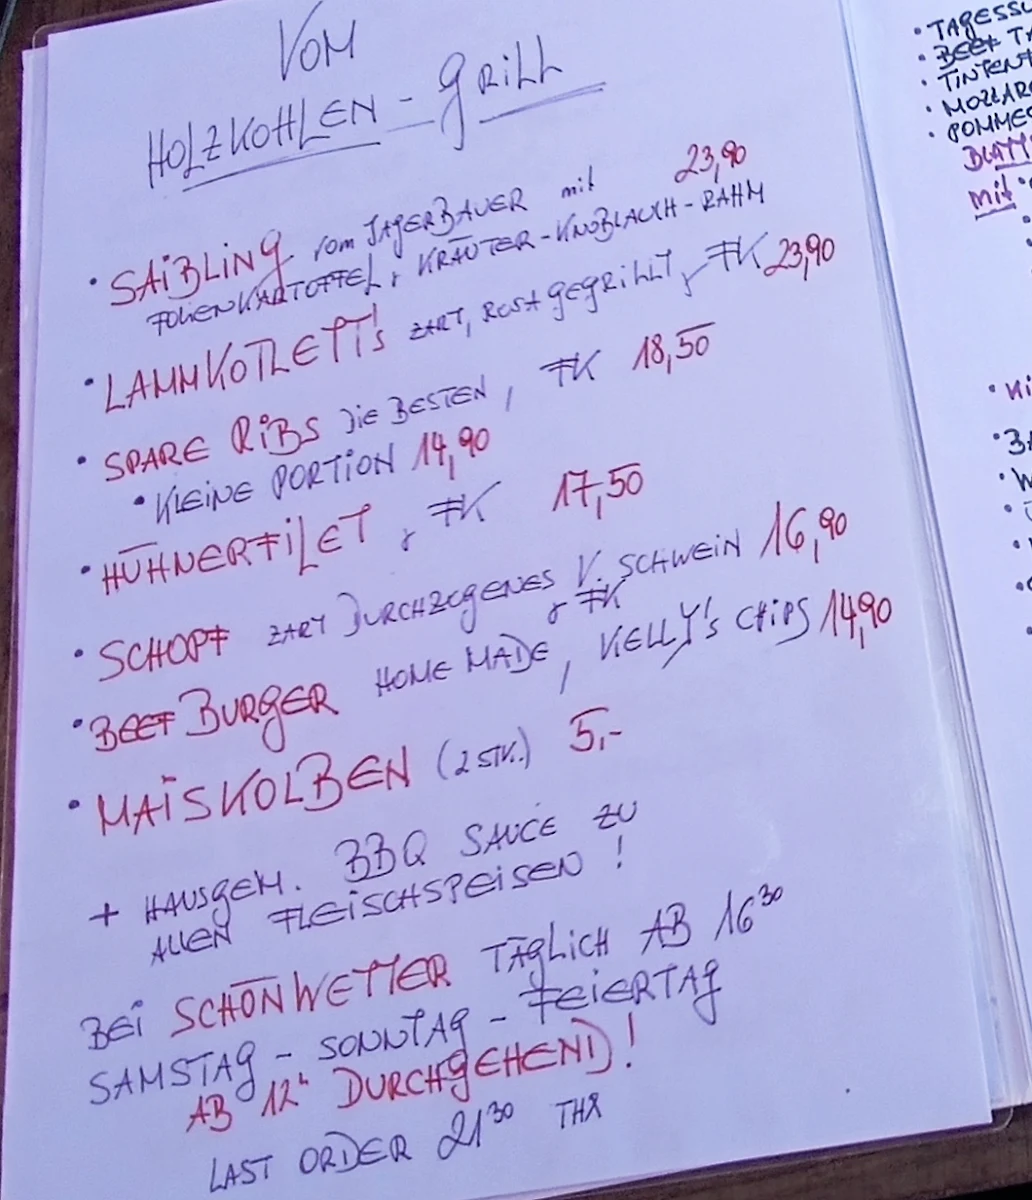 VOM
HOLZKOHLEN - GRILL
• SAIBLING vom JAGERBAUER mit 23,90
FOLIENKARTOFFEL + KRÄUTER-KNOBLAUCH-RAHM
• LAMMKOTLETT's ZART, ROSA GEGRILLT, + FK 23,90
• SPARE RIBS DIE BESTEN, FK 18,50
• KLEINE PORTION 14,90
• HÜHNERFILET + FK 17,50
• SCHOPF ZART DURCHZOGENES V. SCHWEIN 16,90
+ FK
• BEEF BURGER HOME MADE, KELLY'S CHIPS 14,90
• MAISKOLBEN (2 STK.) 5,-
+ HAUSGEM. BBQ SAUCE ZU
ALLEN FLEISCHSPEISEN!
BEI SCHÖNWETTER TÄGLICH AB 16³⁰
SAMSTAG - SONNTAG - FEIERTAG
AB 12ʰ DURCHGEHEND!
LAST ORDER 21³⁰ THX
• TAGESSU
• BEEF TA
• TINTENF
• MOZZARE
• POMMES
BLATT
mit